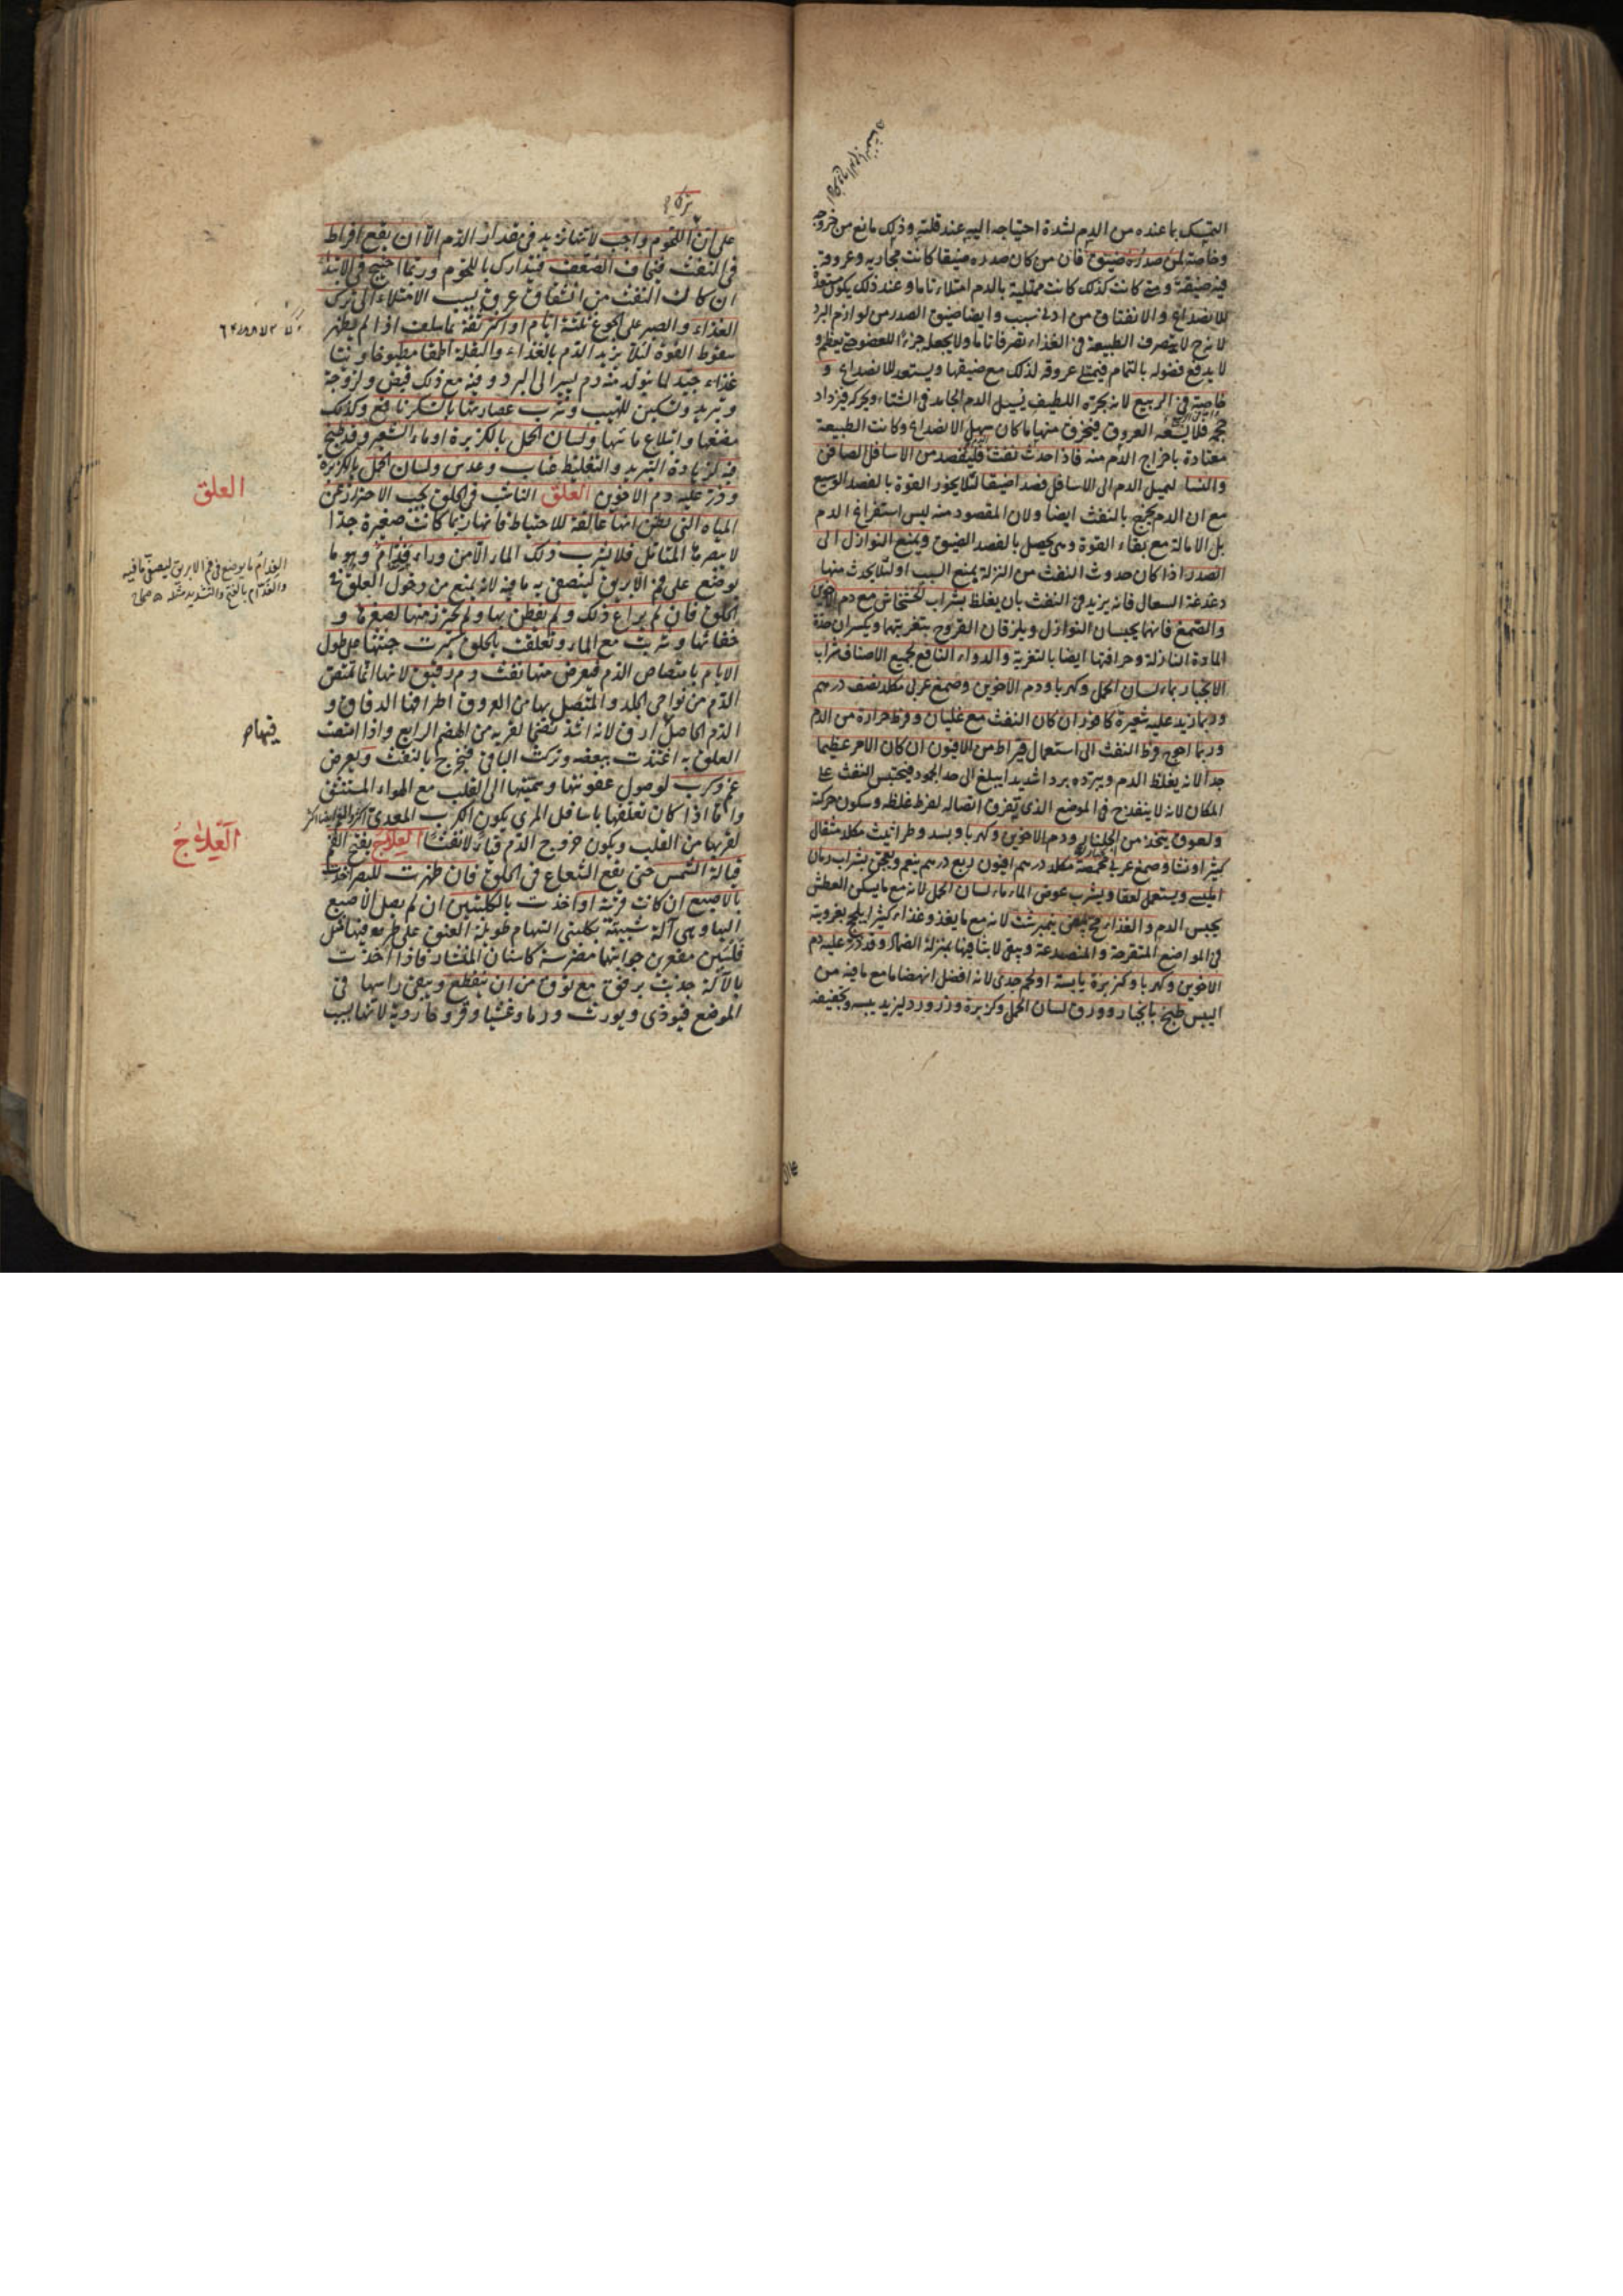 التمسك بما عنده من الدم لشدة احتياجه اليه عند قلته وذلك مانع من خروجه
وخاصة لمن صدره ضيق فان من كان صدره ضيقا كانت مجاريه وعروقه
فيه ضيقة ومتى كانت كذلك كانت ممتلية بالدم امتلاء تاما وعند ذلك يكون مستعدة
للانصداع والانفتاق من ادنى سبب وايضا ضيق الصدر من لوازم البرد
لانه ح لا يتصرف الطبيعة في الغذاء تصرفا تاما ولا يجعله جزءا للعضو حتى يعظم و
لا يدفع فضوله بالتمام فيمتلى عروقه لذلك مع ضيقها ويستعد للانصداع و
خاصة في الربيع لانه بحره اللطيف يسيل الدم الجامد في الشتاء ويحركه فيزداد
حجمه فلا يسعه العروق فينخرق منها ما كان سهل الانصداع وكانت الطبيعة
معتادة باخراج الدم منه فاذا حدث نفث فليفصد من الاسافل الصافن
والنسا لتميل الدم الى الاسافل فصدا ضيقا لئلا يخور القوة بالفصد الوسيع
مع ان الدم يخرج بالنفث ايضا ولان المقصود منه ليس استفراغ الدم
بل الامالة مع بقاء القوة وهى يحصل بالفصد الضيق ويمنع النوازل الى
الصدر اذا كان حدوث النفث من النزلة يمنع السبب او لئلا يحدث منها
دغدغة السعال فانه يزيد في النفث بان يغلظ بشراب الخشخاش مع دم الاخوين
والصمغ فانهما يحبسان النوازل ويلزقان القروح بتغريتهما ويكسران حدة
المادة النازلة وحرافتها ايضا بالتغرية والدواء النافع لجميع الاصناف شراب
الانجبار بماء لسان الحمل وكهربا ودم الاخوين وصمغ عربى مكلد نصف درهم
وربما زيد عليه شعيرة كافور ان كان النفث مع غليان وفرط حرارة من الدم
وربما احوج فرط النفث الى استعمال قيراط من الافيون ان كان الامر عظيما
جدا لانه يغلظ الدم ويبرده بردا شديدا يبلغ الى حد الجمود فيحتبس النفث على
المكان لانه لا ينفدح في الموضع الذى يتفرق اتصاله لفرط غلظه وسكون حركته
ولعوق يتخذ من الجلنار ودم الاخوين وكهربا وبسد وطراثيث مكلد مثقال
كثيرا ونشا وصمغ عربى محمصة مكلد درهم افيون ربع درهم ينعم ويعجن بشراب رمان
امليسى ويستعمل لعقا ويشرب عوض الماء ماء لسان الحمل لانه مع ما يسكن العطش
يحبس الدم والغذاء مح بيض نيمبرشت لانه مع ما يغذو غذاء كثيرا يلحج بغرويته
في المواضع المتقرحة والمنصدعة ويبقى لابثا فيها بمنزلة الضماد وقد ذر عليه دم
الاخوين وكهربا وكزبرة يابسة او لحم جدى لانه افضل انهضاما مع ما فيه من
اليبس طبخ بانجبار وورق لسان الحمل وكزبرة وزرورد ليزيد يبسه وتجفيفه
على ان اللحوم واجب لانها تزيد في مقدار الدم الا ان يقع افراط
في النفث فيخاف الضعف فيتدارك باللحوم وربما احتيج في الابتداء
ان كان النفث من انشقاق عرق بسبب الامتلاء الى ترك
الغذاء والصبر على الجوع ثلثة ايام او اكثر ثقة بما سلف اذا لم يظهر
سقوط القوة لئلا يزيد الدم بالغذاء والبقلة الحمقا مطبوخا ونيئا
غذاء جيد لما يتولد منه دم يسير الى البرد وفيه مع ذلك قبض ولزوجة
وتبريد وتسكين للهيب وشرب عصارتها بالسكر نافع وكذلك
مضغها وابتلاع مائها ولسان الحمل بالكزبرة او ماء الشعير وقد طبخ
فيه لزيادة التبريد والتغليظ عناب وعدس ولسان الحمل بالكزبرة
وذر عليه دم الاخوين العلق الناشب في الحلق يجب الاحتراز عن
المياه التى يظن انها عالقة للاحتياط فانها ربما كانت صغيرة جدا
لا يبصرها المتأمل فلا يشرب ذلك الماء الا من وراء فدام وهو ما
يوضع على فم الابريق ليتصفى به ما فيه لانه يمنع من دخول العلق في
الحلق فان لم يراع ذلك ولم يفطن بها ولم يحترز منها لصغرها و
خفائها وشربت مع الماء وتعلقت بالحلق كبرت جثتها على طول
الايام بامتصاص الدم فيعرض منها نفث دم رقيق لانها انما تمتص
الدم من نواحى الجلد والمتصل بها من العروق اطرافها الدقاق و
الدم الحاصل ارق لانه اشد نضجا لقربه من الهضم الرابع واذا امتصت
العلق به اغتذت ببعضه وتركت الباقى فيخرج بالنفث ويعرض
غم وكرب لوصول عفونتها وسميتها الى القلب مع الهواء المستنشق
واما اذا كان تعلقها باسافل المرى يكون الكرب المعدى اكثر
لقربها من القلب ويكون خروج الدم قيأ لا نفثا العلاج بفتح الفم
قبالة الشمس حتى يقع الشعاع في الحلق فان ظهرت للبصر اخذت
بالاصبع ان كانت قريبة او اخذت بالكلبتين ان لم يصل الاصبع
اليها وهى آلة شبيهة بكلبتى السهام طويلة العنق على طرفيها مثل
فلسين مقعرين جوانبهما مضرسة كاسنان المنشار فاذا اخذت
بالآلة جذبت برفق مع توق من ان ينقطع ويبقى راسها في
الموضع فيوذى ويورث ورما وغشيا وقروحا ردية لانها بسبب
العلق
الفدام ما يوضع في فم الابريق ليصفى ما فيه
والفدام بالفتح والتشديد مثله
فيها
العلاج